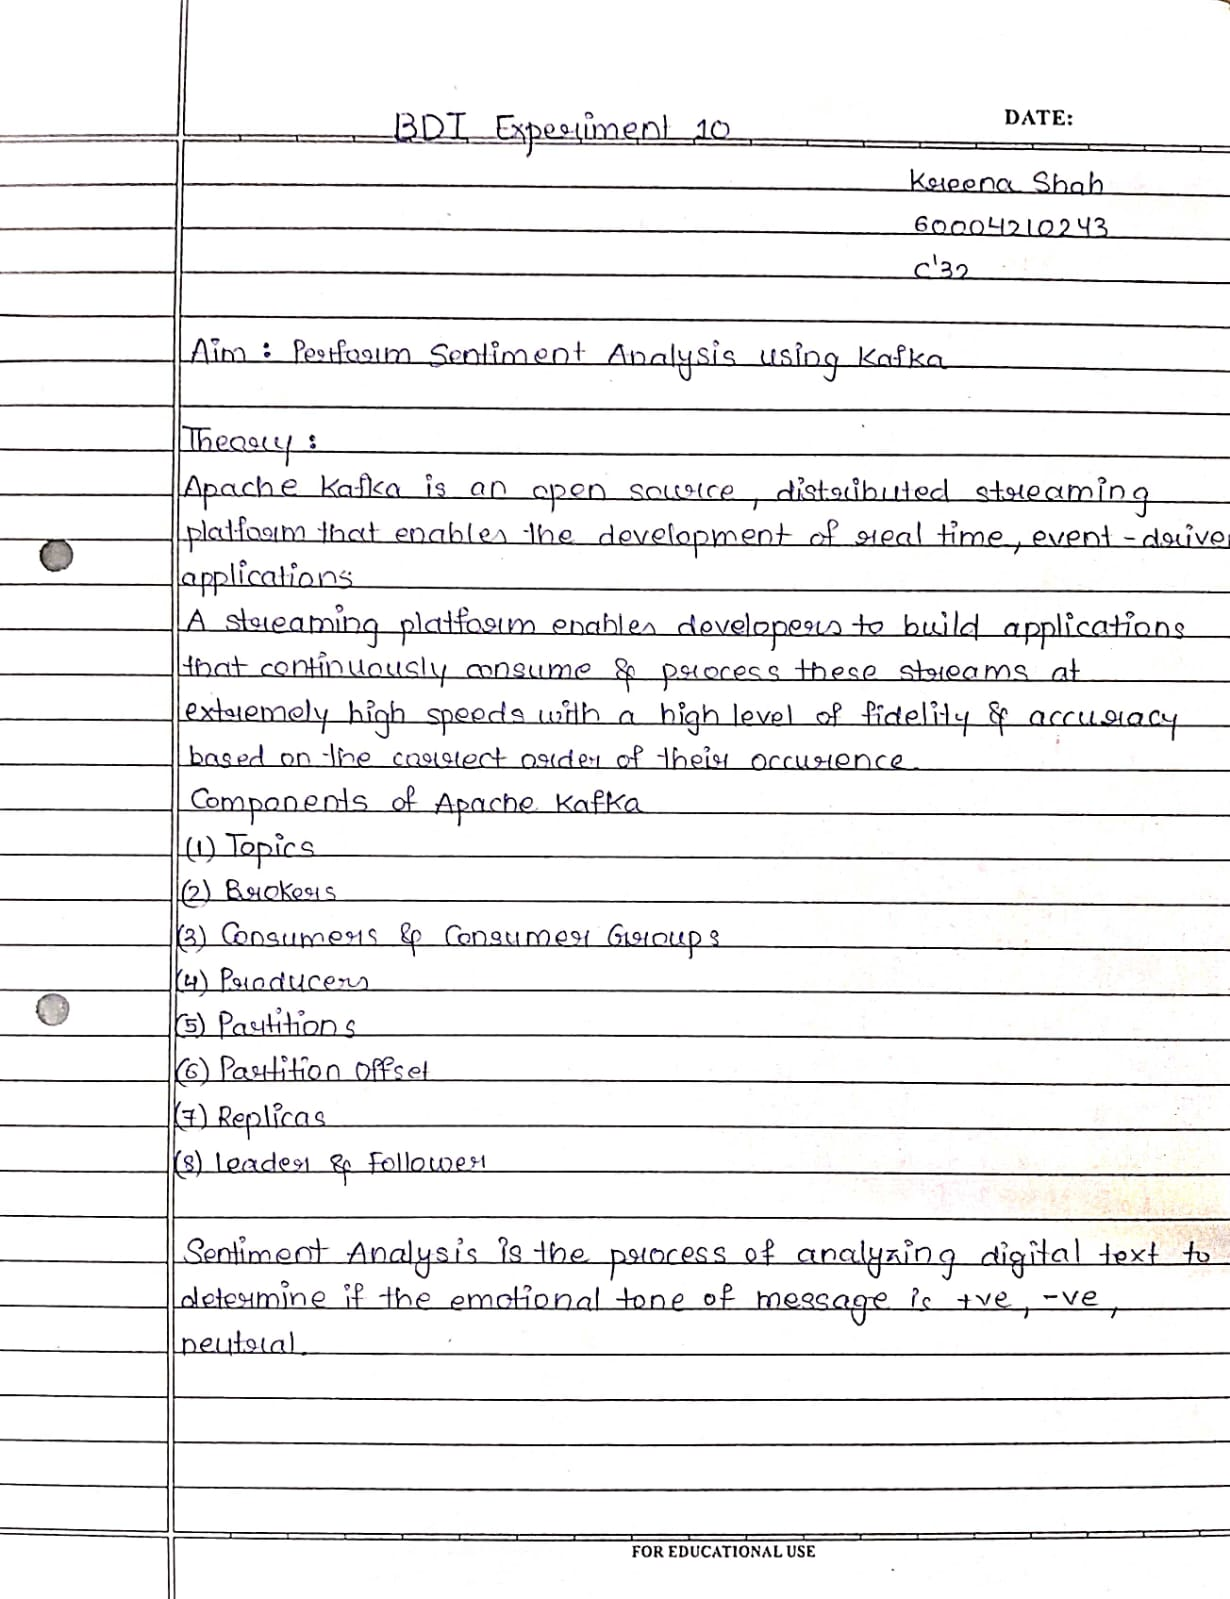 BDI Experiment 10
DATE:
Kreena Shah
60004210243
C'32
Aim : Perform Sentiment Analysis using Kafka
Theory :
Apache Kafka is an open source, distributed streaming
platform that enables the development of real time, event-driven
applications
A streaming platform enables developers to build applications
that continuously consume & process these streams at
extremely high speeds with a high level of fidelity & accuracy
based on the correct order of their occurence.
Components of Apache Kafka
(1) Topics
(2) Brokers
(3) Consumers & Consumer Groups
(4) Producers
(5) Partitions
(6) Partition Offset
(7) Replicas
(8) Leader & Follower
Sentiment Analysis is the process of analyzing digital text to
determine if the emotional tone of message is +ve, -ve,
neutral.
FOR EDUCATIONAL USE